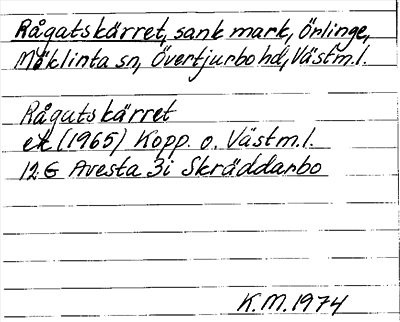 Rågatskärret, sank mark, Örlinge,
Möklinta sn, Övertjurbo hd, Västm.l.
Rågatskärret
ek (1965) Kopp. o. Västm.l.
12 G Avesta 3i Skräddarbo
K.M. 1974